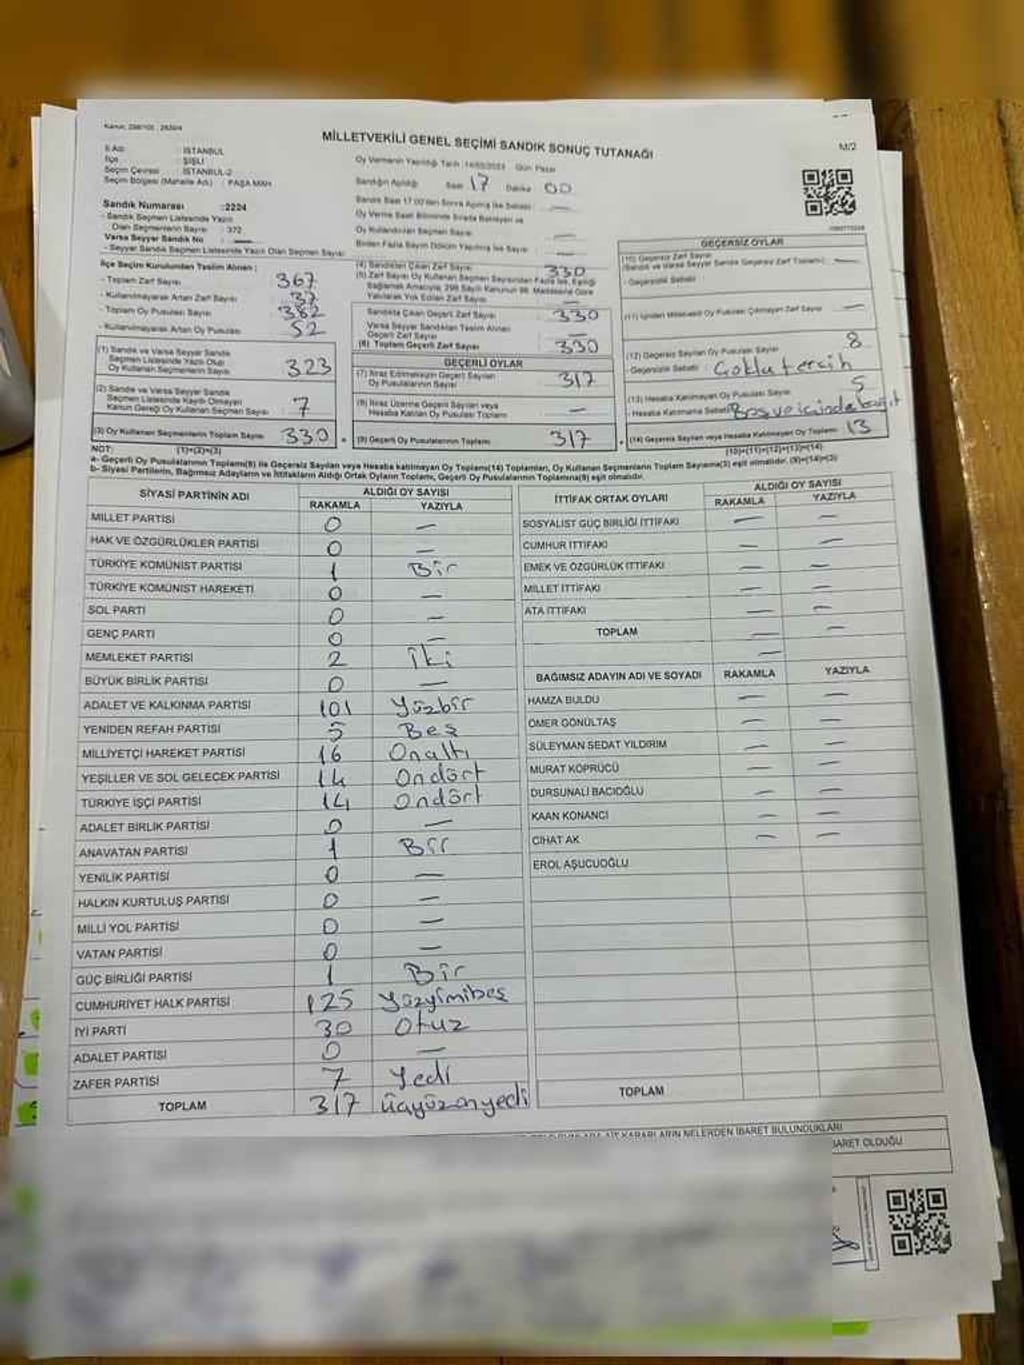 MİLLETVEKİLİ GENEL SEÇİMİ SANDIK SONUÇ TUTANAĞI
M/2
İl Adı : İSTANBUL
İlçe : ŞİŞLİ
Seçim Çevresi : İSTANBUL-2
Seçim Bölgesi (Mahalle Adı) : PAŞA MAH
Oy Vermenin Yapıldığı Tarih : 14/05/2023 Gün Pazar
Sandığın Açıldığı Saat 17 Dakika 00
Sandık Numarası :2224
- Sandık Seçmen Listesinde Yazılı
Olan Seçmenlerin Sayısı : 372
Varsa Seyyar Sandık No :
- Seyyar Sandık Seçmen Listesinde Yazılı Olan Seçmen Sayısı
İlçe Seçim Kurulundan Teslim Alınan :
- Toplam Zarf Sayısı 367
- Kullanılmayarak Artan Zarf Sayısı 37
- Toplam Oy Pusulası Sayısı 382
- Kullanılmayarak Artan Oy Pusulası 52
(1) Sandık ve Varsa Seyyar Sandık
Seçmen Listesinde Yazılı Olup
Oy Kullanan Seçmenlerin Sayısı 323
(2) Sandık ve Varsa Seyyar Sandık
Seçmen Listesinde Kayıtlı Olmayan
Kanun Gereği Oy Kullanan Seçmen Sayısı 7
(3) Oy Kullanan Seçmenlerin Toplam Sayısı 330
(4) Sandıktan Çıkan Zarf Sayısı 330
(5) Zarf Sayısı Oy Kullanan Seçmen Sayısından Fazla İse, Eşitliği
Sağlamak Amacıyla, 298 Sayılı Kanunun 98. Maddesine Göre
Yakılarak Yok Edilen Zarf Sayısı —
Sandıkta Çıkan Geçerli Zarf Sayısı 330
Varsa Seyyar Sandıktan Teslim Alınan
Geçerli Zarf Sayısı —
(6) Toplam Geçerli Zarf Sayısı 330
GEÇERLİ OYLAR
(7) İtiraz Edilmeksizin Geçerli Sayılan
Oy Pusulalarının Sayısı 317
(8) İtiraz Üzerine Geçerli Sayılan veya
Hesaba Katılan Oy Pusulası Toplamı —
(9) Geçerli Oy Pusulalarının Toplamı 317
GEÇERSİZ OYLAR
(11) İçinden Milletvekili Oy Pusulası Çıkmayan Zarf Sayısı —
(12) Geçersiz Sayılan Oy Pusulası Sayısı 8
- Geçersizlik Sebebi : Çoklu tercih
(13) Hesaba Katılmayan Oy Pusulası Sayısı 5
- Hesaba Katılmama Sebebi
(14) Geçersiz Sayılan veya Hesaba Katılmayan Oy Toplamı 13
NOT: (1)+(2)=(3)
(10)+(11)+(12)+(13)=(14)
a- Geçerli Oy Pusulalarının Toplamı(9) ile Geçersiz Sayılan veya Hesaba katılmayan Oy Toplamı(14) Toplamları, Oy Kullanan Seçmenlerin Toplam Sayısına(3) eşit olmalıdır. (9)+(14)=(3)
b- Siyasi Partilerin, Bağımsız Adayların ve İttifakların Aldığı Ortak Oyların Toplamı, Geçerli Oy Pusulalarının Toplamına(9) eşit olmalıdır.
SİYASİ PARTİNİN ADI ALDIĞI OY SAYISI
RAKAMLA YAZIYLA
MİLLET PARTİSİ 0 —
HAK VE ÖZGÜRLÜKLER PARTİSİ 0 —
TÜRKİYE KOMÜNİST PARTİSİ 1 Bir
TÜRKİYE KOMÜNİST HAREKETİ 0 —
SOL PARTİ 0 —
GENÇ PARTİ 0 —
MEMLEKET PARTİSİ 2 İki
BÜYÜK BİRLİK PARTİSİ 0 —
ADALET VE KALKINMA PARTİSİ 101 Yüzbir
YENİDEN REFAH PARTİSİ 5 Beş
MİLLİYETÇİ HAREKET PARTİSİ 16 Onaltı
YEŞİLLER VE SOL GELECEK PARTİSİ 14 Ondört
TÜRKİYE İŞÇİ PARTİSİ 14 Ondört
ADALET BİRLİK PARTİSİ 0 —
ANAVATAN PARTİSİ 1 Bir
YENİLİK PARTİSİ 0 —
HALKIN KURTULUŞ PARTİSİ 0 —
MİLLİ YOL PARTİSİ 0 —
VATAN PARTİSİ 0 —
GÜÇ BİRLİĞİ PARTİSİ 1 Bir
CUMHURİYET HALK PARTİSİ 125 Yüzyimibeş
İYİ PARTİ 30 Otuz
ADALET PARTİSİ 0 —
ZAFER PARTİSİ 7 Yedi
TOPLAM 317 üçyüzonyedi
İTTİFAK ORTAK OYLARI ALDIĞI OY SAYISI
RAKAMLA YAZIYLA
SOSYALİST GÜÇ BİRLİĞİ İTTİFAKI — —
CUMHUR İTTİFAKI — —
EMEK VE ÖZGÜRLÜK İTTİFAKI — —
MİLLET İTTİFAKI — —
ATA İTTİFAKI — —
TOPLAM — —
BAĞIMSIZ ADAYIN ADI VE SOYADI RAKAMLA YAZIYLA
HAMZA BULDU — —
ÖMER GÖNÜLTAŞ — —
SÜLEYMAN SEDAT YILDIRIM — —
MURAT KÖPRÜCÜ — —
DURSUNALİ BACIOĞLU — —
KAAN KONANCI — —
CİHAT AK — —
EROL AŞUCUOĞLU
TOPLAM
KARARLARIN NELERDEN İBARET BULUNDUKLARI
BARET OLDUĞU